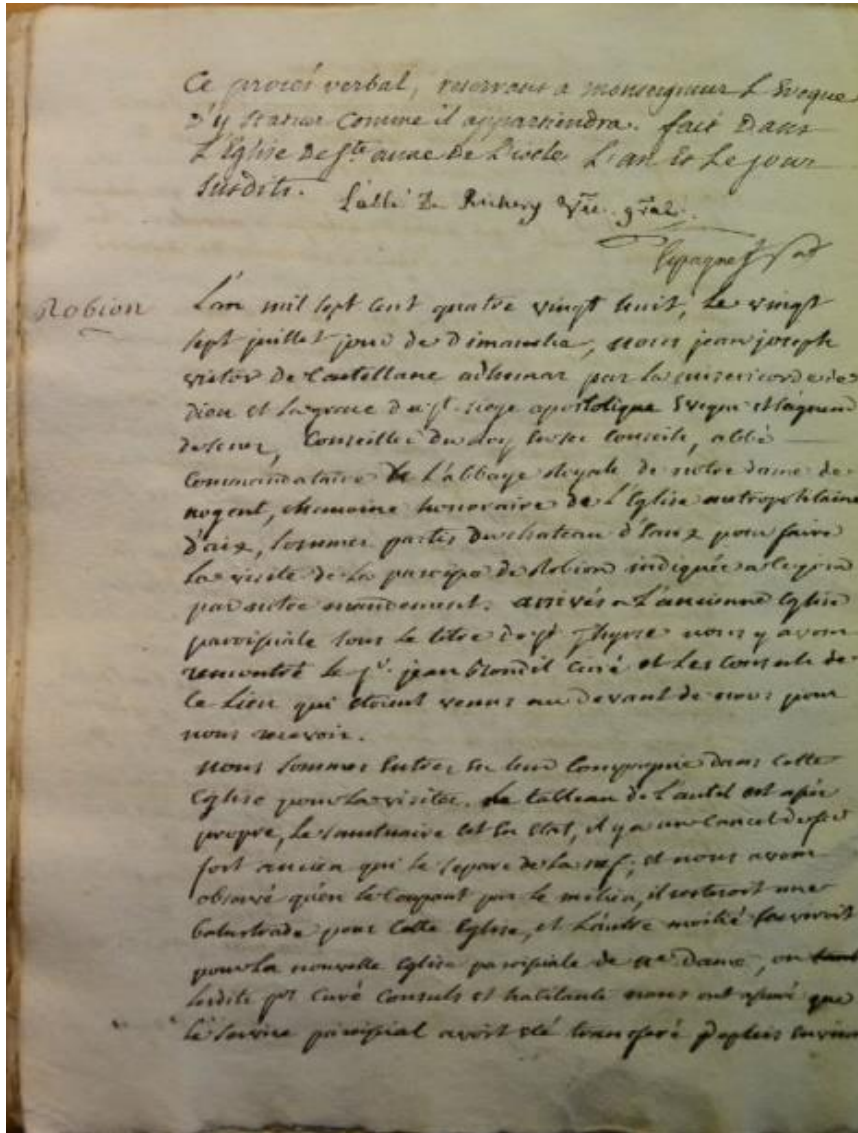 Ce procès verbal, reservant a monseigneur L'Eveque
D'y statuer comme il appartiendra. fait Dans
L'Eglise De Ste anne De L'iscle L'an Et Le jour
susdits.
L'abbé De Richery Vic. gral.
Espagnet
Robion
L'an mil sept cent quatre vingt huit, Le vingt
sept juillet jour de Dimanche, nous jean joseph
victor de Castellane adhemar par La misericorde de
dieu et La grace du st. siege apostolique Eveque et seigneur
de senez, Conseiller du roy En ses Conseils, abbé
Commandataire de L'abbaye royale de notre dame de
nogent, chanoine honoraire de L'Eglise metropolitaine
d'aix, sommes partis du chateau d'Taulx pour faire
La visite de La paroisse de Robion indiquée a ce jour
par notre mandement. arrivés a L'ancienne Eglise
paroissiale sous Le titre de st Thyrse nous y avons
rencontré Le sr. jean blondil curé et Les consuls de
ce Lieu qui etoient venus au devant de nous pour
nous recevoir.
nous sommes Entrés En leur Compagnie dans cette
Eglise pour La visiter. Le tableau de L'autel est assés
propre, Le sanctuaire est En etat, il y a un Cancel de fer
fort ancien qui le separe de La nef; et nous avons
observé qu'en le Coupant par le milieu, il resteroit une
balustrade pour Cette Eglise, et L'autre moitié serviroit
pour La nouvelle Eglise paroissiale de Ne Dame, ou
Lesdits srs Curé Consuls et habitants nous ont assuré que
Le service paroissial avoit eté transferé Depuis Environ